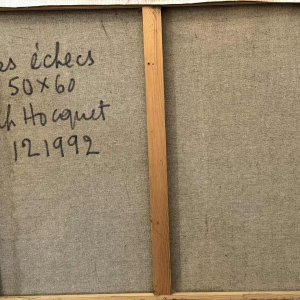 es échecs
50x60
ph Hocquet
121992